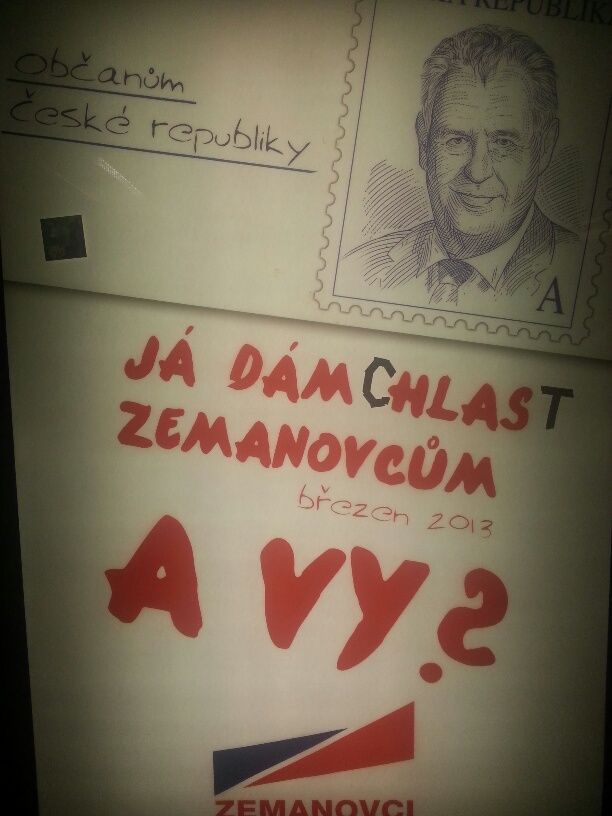 REPUBLIK
Občanům
České republiky
A
JÁ DÁM CHLAST
ZEMANOVCŮM
březen 2013
A VY?
ZEMANOVCI